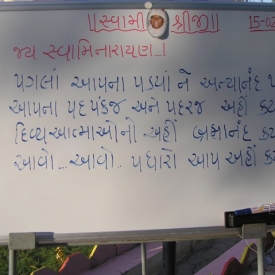 ॥ સ્વામી શ્રીજી ॥ 15-02
જય સ્વામિનારાયણ...!
પગલાં આપના પડયાં ને અત્યાનંદ
આપના પદપંકજ અને પદરજ અહીં
દિવ્યઆત્માઓનો અહીં બ્રહ્માનંદ
આવો...આવો.. પધારો આપ અહીં